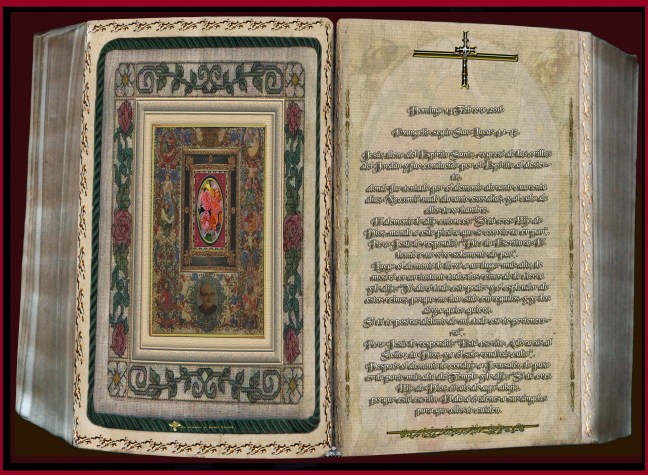 Domingo 14 Febrero 2016
Evangelio según San Lucas 4,1-13.
Jesús, lleno del Espíritu Santo, regresó de las orillas
del Jordán y fue conducido por el Espíritu al desier-
to,
donde fue tentado por el demonio durante cuarenta
días. No comió nada durante esos días, y al cabo de
ellos tuvo hambre.
El demonio le dijo entonces: "Si tú eres Hijo de
Dios, manda a esta piedra que se convierta en pan".
Pero Jesús le respondió: "Dice la Escritura: El
hombre no vive solamente de pan".
Luego el demonio lo llevó a un lugar más alto, le
mostró en un instante todos los reinos de la tierra
y le dijo: "Te daré todo este poder y el esplendor de
estos reinos, porque me han sido entregados, y yo los
doy a quien quiero.
Si tú te postras delante de mí, todo eso te pertenece-
rá".
Pero Jesús le respondió: "Está escrito: Adorarás al
Señor, tu Dios, y a él solo rendirás culto".
Después el demonio lo condujo a Jerusalén, lo puso
en la parte más alta del Templo y le dijo: "Si tú eres
Hijo de Dios, tírate de aquí abajo,
porque está escrito: El dará órdenes a sus ángeles
para que ellos te cuiden.